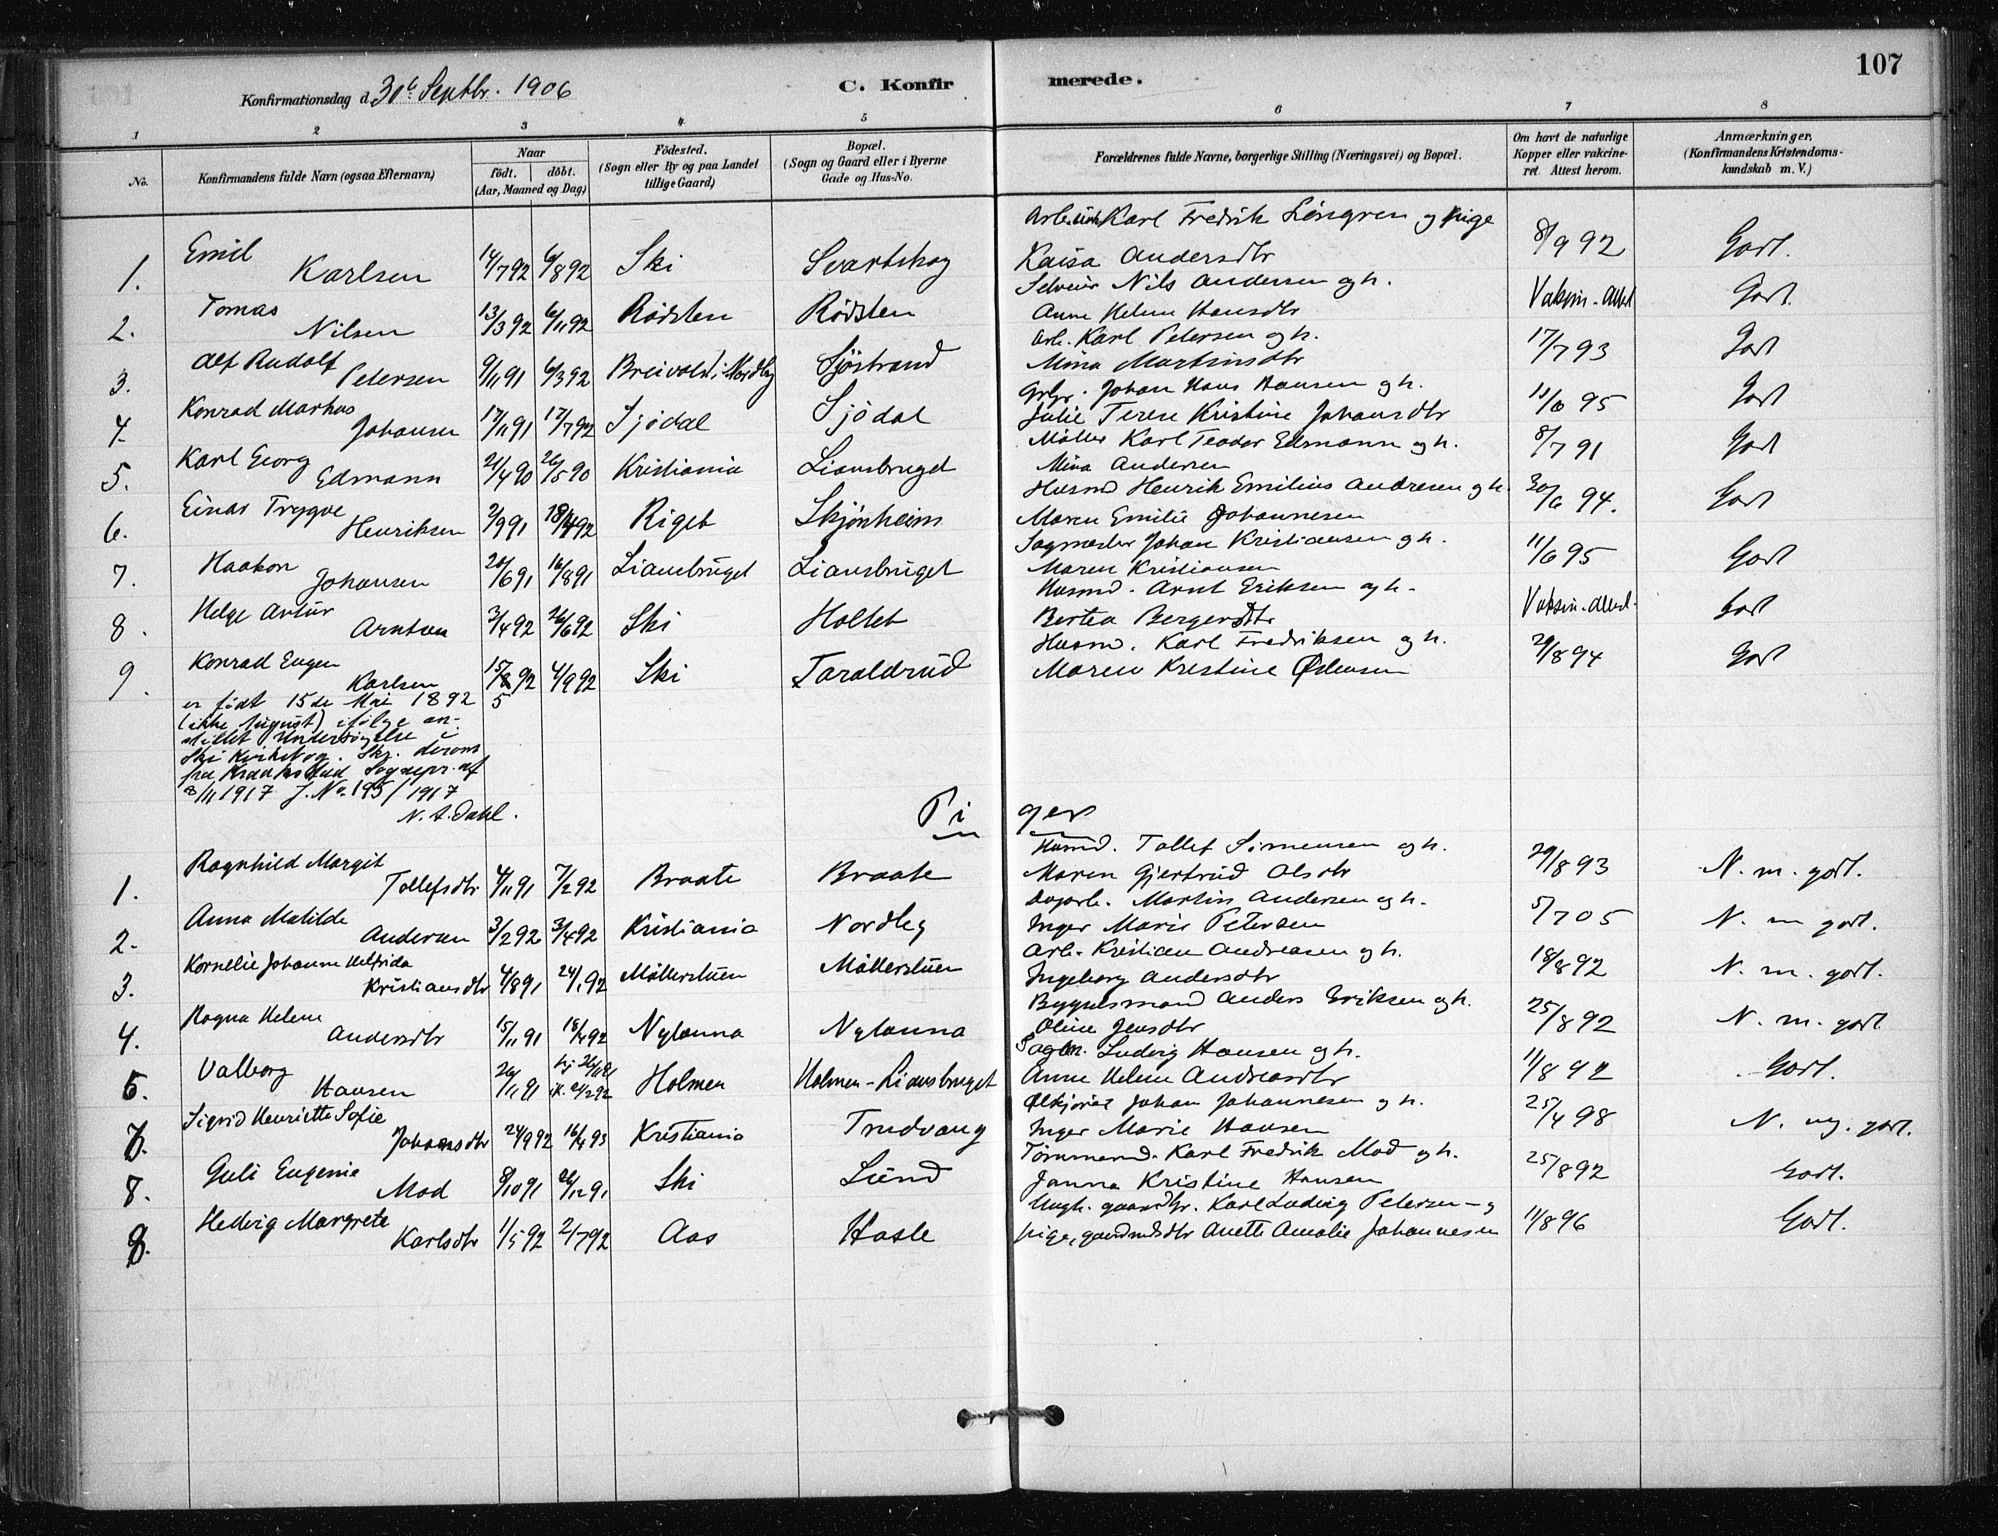 107
Konfirmationsdag d. 30te Septbr. 1906 C. Konfirmerede.
1 2 3 4 5 6 7 8
No. Konfirmandens fulde Navn (ogsaa Efternavn) Naar födt. döbt. (Aar, Maaned og Dag) Födested. (Sogn eller By og paa Landet tillige Gaard) Bopæl. (Sogn og Gaard eller i Byerne Gade og Hus-No. Forældrenes fulde Navne, borgerlige Stilling (Næringsvei) og Bopæl. Om havt de naturlige Kopper eller vakcineret. Attest herom. Anmærkninger. (Konfirmandens Kristendomskundskab m. V.)
Karl Fredrik Löngren og pige
1. Emil Karlsen 14/7 92 6/8 92 Ski Svartskog Kaisa Andersdtr 8/9 92 Godt.
Selveier Nils Andersen og h.
2. Tomas Nilsen 13/3 92 6/11 92 Rödsten Rödsten Anne Helene Hansdtr Vaksin-Attest Godt
Arb. Karl Petersen og h.
3. Alf Rudolf Petersen 9/11 91 6/3 92 Breivold i Nordby Sjöstrand Mina Martinsdtr 17/7 93 Godt
Grbr. Johan Hans Hansen og h.
4. Konrad Markus Johansen 17/11 91 17/7 92 Sjödal Sjödal Julie Terese Kristine Johansdtr 11/6 95 Godt
Möller Karl Teodor Edmann og h.
5. Karl Georg Edmann 21/4 90 26/5 90 Kristiania Liansbruget Mina Andersen 8/7 91 Godt
Husmd Henrik Emilius Andresen og h.
6. Einar Trygve Henriksen 2/9 91 18/4 92 Riget Skjönheim Maren Emilie Johannesen 30/6 94. Godt
Sagmester Johan Kristiansen og h.
7. Haakon Johansen 20/6 91 16/8 91 Liansbruget Liansbruget Maren Kristiansen 11/6 95 Godt
Husmd. Arnt Eriksen og h.
8. Helge Artur Arntsen 3/4 92 26/6 92 Ski Holtet Bertea Bergersdtr Vaksin-Attest Godt
Husm. Karl Fredriksen og h.
9. Konrad Eugen Karlsen 15/8 92 4/9 92 Ski Taraldrud Maren Kristine Østensen 29/8 94 Godt
er födt 15de Mai 1892 5
(ikke August) ifölge an-
stillet Undersögelse i
Ski Kirkebog. Skr. derom
fra Kraakstad Sognepr. af
8/11 1917 J. No. 195/1917
N. A. Dahl.
Piger
Husmd. Tollef Simensen og h.
1. Ragnhild Margit Tollefsdtr 4/11 91 7/2 92 Braate Braate Maren Gjertrud Olsdtr 29/8 93 N. m. godt.
Martin Andersen og h.
2. Anna Matilde Andersen 3/2 92 3/4 92 Kristiania Nordby Inger Marie Petersen 5/7 05 N. m godt.
Arb. Kristian Andreasen og h.
3. Kornelie Johanne Helfrida Kristiansdtr 4/8 91 24/1 92 Möllerstuen Möllerstuen Ingeborg Andersdtr 18/8 92 N. m. godt.
Bygselsmand Anders Eriksen og h.
4. Ragna Helene Andersdtr 15/11 91 18/4 92 Nylænna Nylænna Oline Jensdtr 25/8 92 N. m. godt
Ludvig Hansen og h.
5. Valborg Hansen 20/11 91 hj. 26/11 91 ik. 21/2 92 Holmen Holmen-Liansbruget Anne Helene Andreasdtr 11/8 92 Godt.
Ölkjörer Johan Johannesen og h.
7. Sigrid Henriette Sofie Johansdtr 24/9 92 16/4 93 Kristiania Trudvang Inger Marie Hansen 25/4 98 N. mg. godt.
Tömmermd. Karl Fredrik Mod og h.
8. Guli Eugenie Mod 8/10 91 26/12 91 Ski Lund Janna Kristine Hansen 25/8 92 Godt.
Ungk. gaardbr. Karl Ludvig Petersen og
8. Hedvig Margrete Karlsdtr 1/5 92 2/7 92 Aas Hasle pige, gaardmdsdtr Anette Amalie Johannesen 11/8 96 Godt.